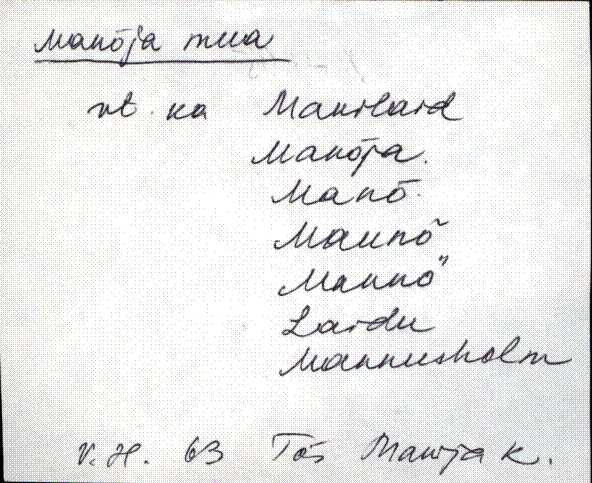 Manõja mua
vt. ka Manilaid
Manõja.
Manõ.
Mannõ
Mannö
Laidu
Mannusholm
V.H. 63 Tõs Manõja k.